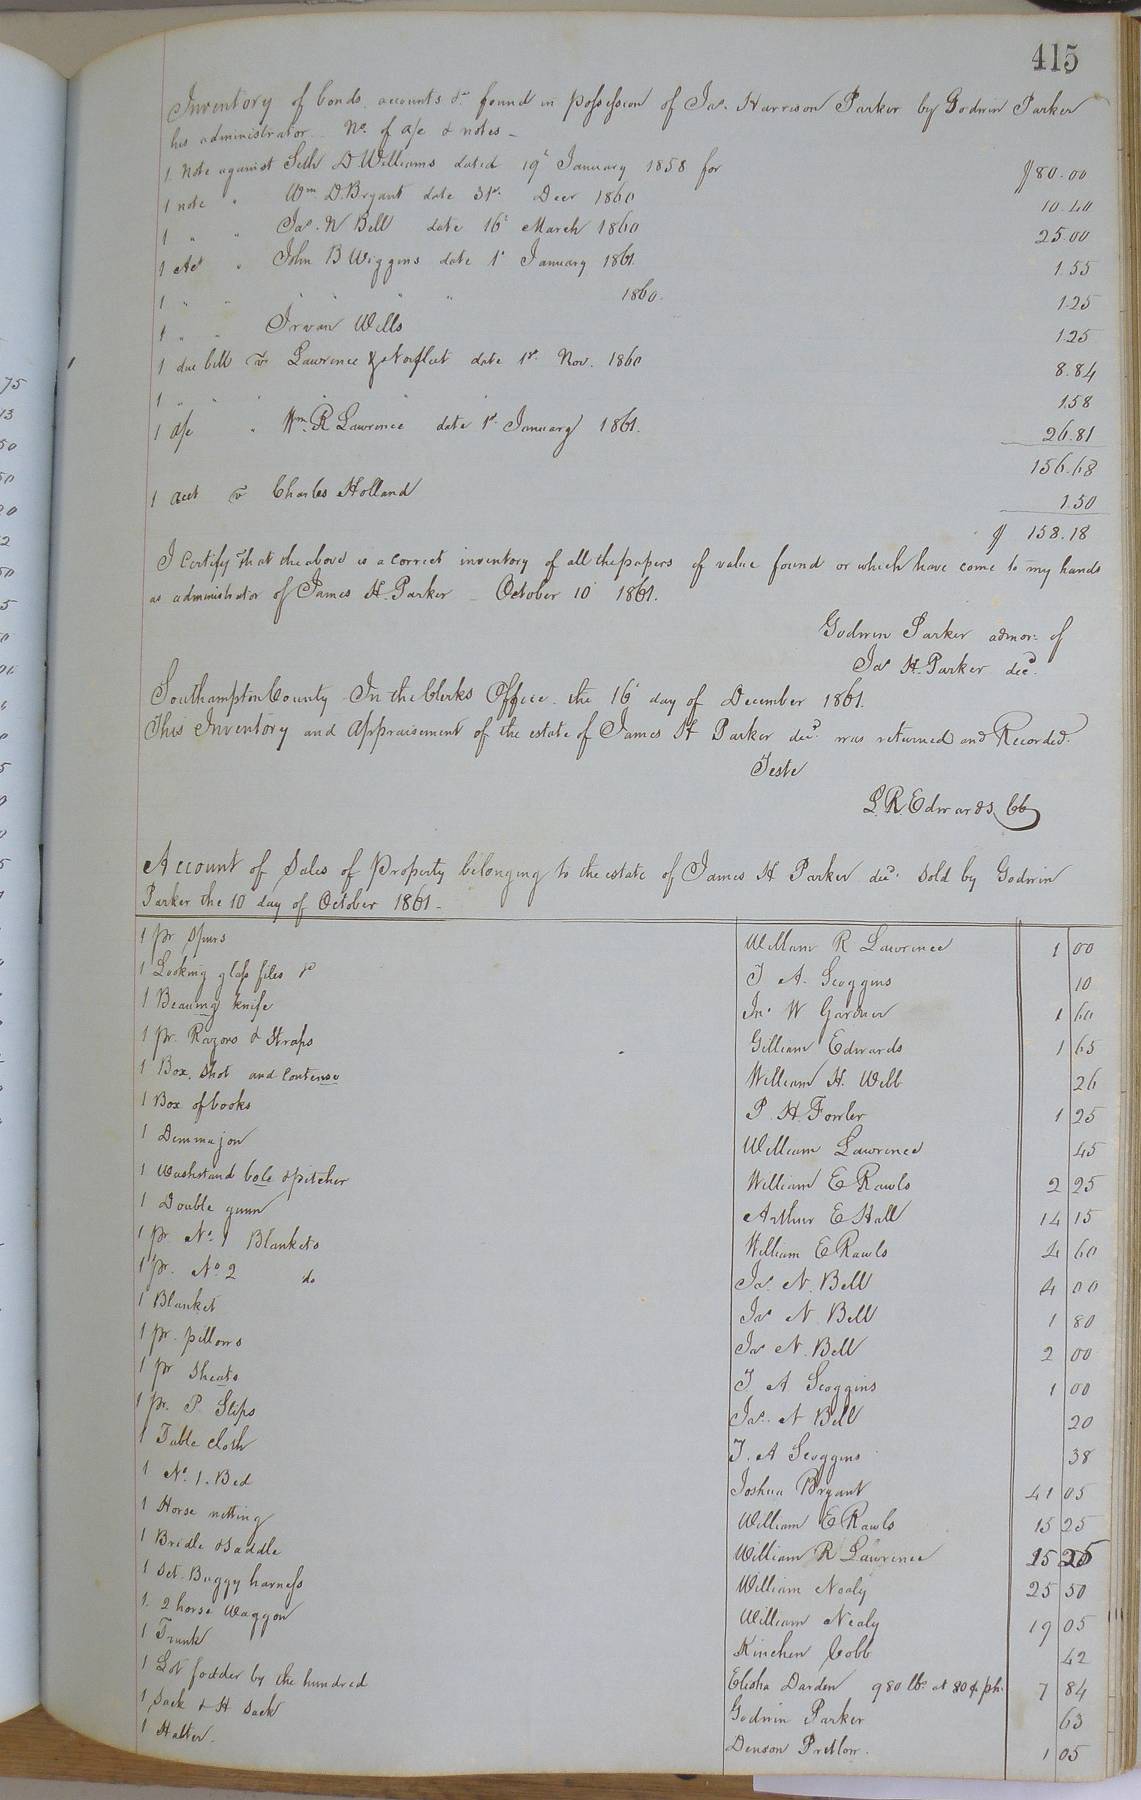 415
Inventory of bonds, accounts &c found in possession of Jas. Harrison Parker by Godwin Parker
his administrator. No. of a/c & notes -
1 Note against Seth D Williams dated 19th January 1858 for $80.00
1 note " Wm. D. Bryant date 31st. Decr 1860 10.40
1 " " Jas. N Bell date 16th March 1860 25.00
1 Act " John B Wiggins date 1st January 1861. 1.55
1 " " " " " " 1860. 1.25
1 " " Irvan Wells 1.25
1 due bill v Lawrence & Norfleet date 1st. Nov. 1860 8.84
1 " " " " " 1.58
1 a/c " Wm. R Lawrence date 1st. January 1861. 26.81
156.68
1 acct v Charles Holland 1.50
$ 158.18
I certify that the above is a correct inventory of all the papers of value found or which have come to my hands
as administrator of James H. Parker - October 10th 1861.
Godwin Parker admor. of
Jas H. Parker decd.
Southampton County In the Clerks Office. the 16th day of December 1861.
This Inventory and Appraisement of the estate of James H Parker decd. was returned and Recorded.
Teste
L. R. Edwards CC
Account of Sales of Property belonging to the estate of James H Parker decd. sold by Godwin
Parker the 10th day of October 1861 -
1 pr Spurs William R Lawrence 1 00
1 Looking glass files &c T A. Scoggins 10
1 Beaming knife Jno. W Gardner 1 60
1 pr. Razors & Straps Gilliam Edwards 1 65
1 Box, Shot and Contense William H. Webb 26
1 Box of books P. H. Fowler 1 25
1 Demmajon William Lawrence 45
1 Washstand bole & pitcher William E Rawls 2 25
1 Double gunn Arthur E Hall 14 15
1 pr. No. 1 Blankets William E Rawls 4 60
1 pr. No. 2 do Jas. N. Bell 4 00
1 Blanket Jas N. Bell 1 80
1 pr. pillows Jas N. Bell 2 00
1 pr Sheats T A Scoggins 1 00
1 pr. P. Slips Jas. N Bell 20
1 Table cloth T. A Scoggins 38
1 No. 1. Bed Joshua Bryant 41 05
1 Horse netting William E Rawls 15 25
1 Bridle & Saddle William R Lawrence 15 25
1 Set. Buggy harness William Nealy 25 50
1. 2 horse Waggon William Nealy 19 05
1 Trunk Kinchen Cobb 42
1 Lot fodder by the hundred Elisha Darden 980 lbs. at 80¢ ph. 7 84
1 Sack & H Sack Godwin Parker 63
1 Halter. Denson Pretlow. 1 05